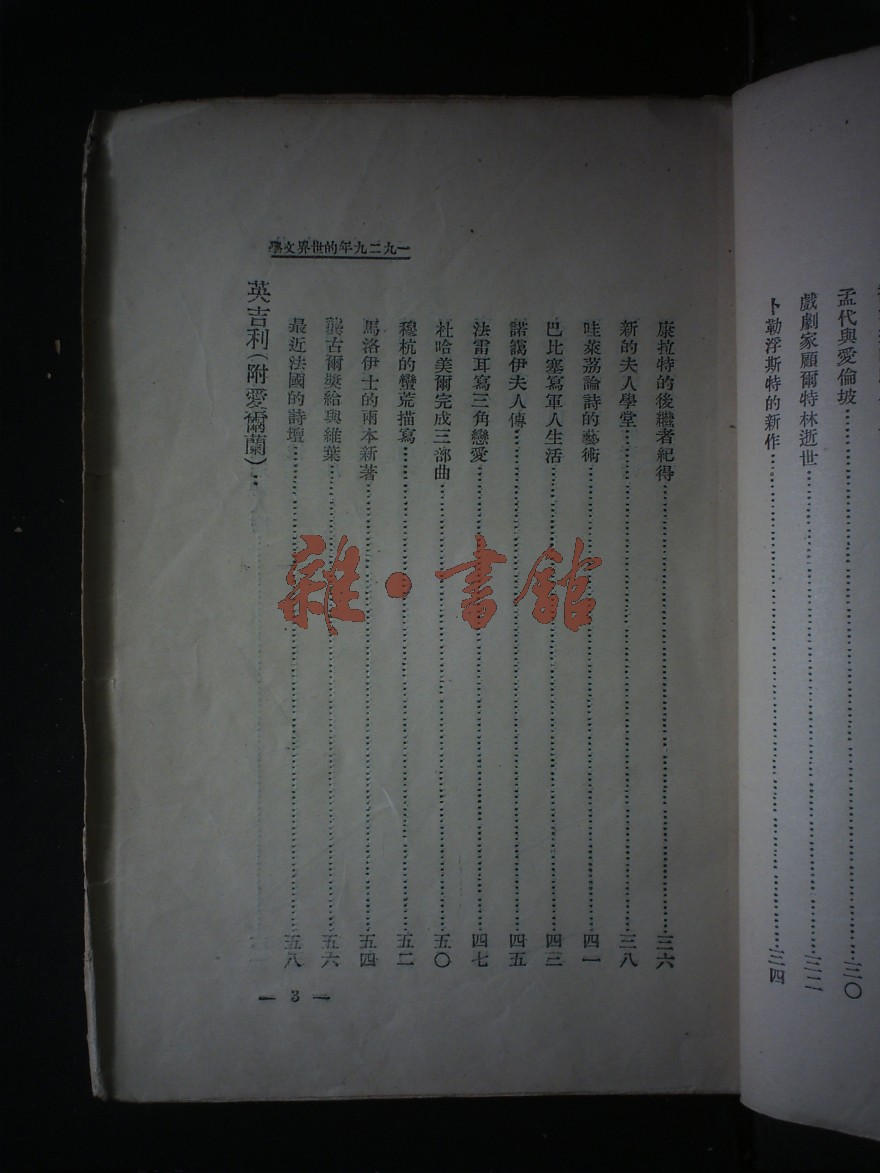 孟代與愛倫坡……三〇
戲劇家顧爾特林逝世……三二
卜勒浮斯特的新作……三四
一九二九年的世界文學
康拉特的後繼者紀得……三六
新的夫人學堂……三八
哇萊荔論詩的藝術……四一
巴比塞寫軍人生活……四三
諾靄伊夫人傳……四五
法雷耳寫三角戀愛……四七
杜哈美爾完成三部曲……五〇
穆杭的蠻荒描寫……五二
馬洛伊士的兩本新著……五四
龔古爾獎給與維葉……五六
最近法國的詩壇……五八
英吉利(附愛爾蘭)……
— 3 —
雜·書館